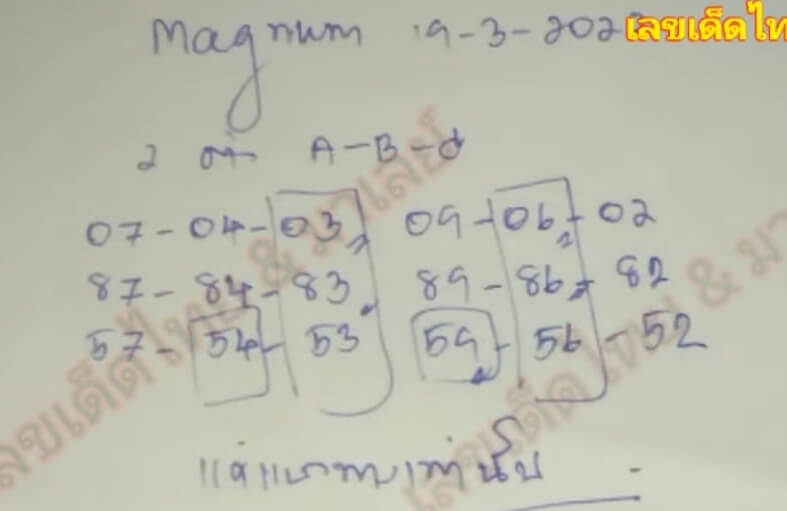 Magnum 19-3-202 เลขเด็ดไท
2 ตัว A-B-d
07-04-03, 09-06-02
87-84-83 89-86-82
57-54-53 59-56-52
เลขเด็ดไทย & มาเลย์
เลขเด็ดไทย & มา